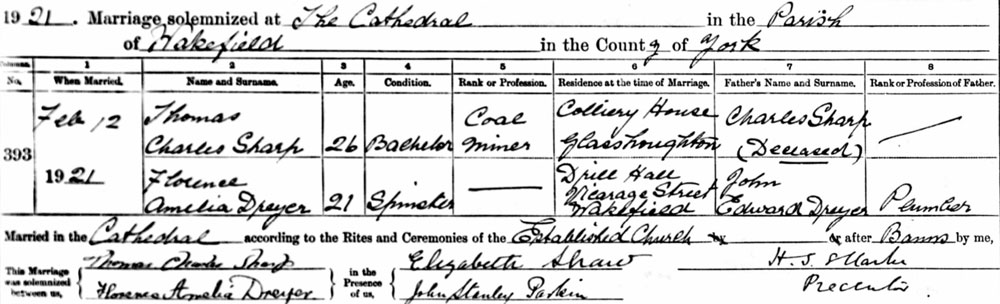 1921. Marriage solemnized at The Cathedral in the Parish
of Wakefield in the County of York
Columns:— 1 2 3 4 5 6 7 8
No. When Married. Name and Surname. Age. Condition. Rank or Profession. Residence at the time of Marriage. Father's Name and Surname. Rank or Profession of Father.
393 Feb 12 Thomas Charles Sharp 26 Bachelor Coal miner Colliery House Glasshoughton Charles Sharp (Deceased) —
1921 Florence Amelia Dreyer 21 Spinster — Drill Hall Vicarage Street Wakefield John Edward Dreyer Plumber
Married in the Cathedral according to the Rites and Ceremonies of the Established Church by or after Banns by me,
This Marriage was solemnized between us, Thomas Charles Sharp in the Presence of us, Elizabeth Shaw H. S.
Florence Amelia Dreyer John Stanley Parkin Precentor